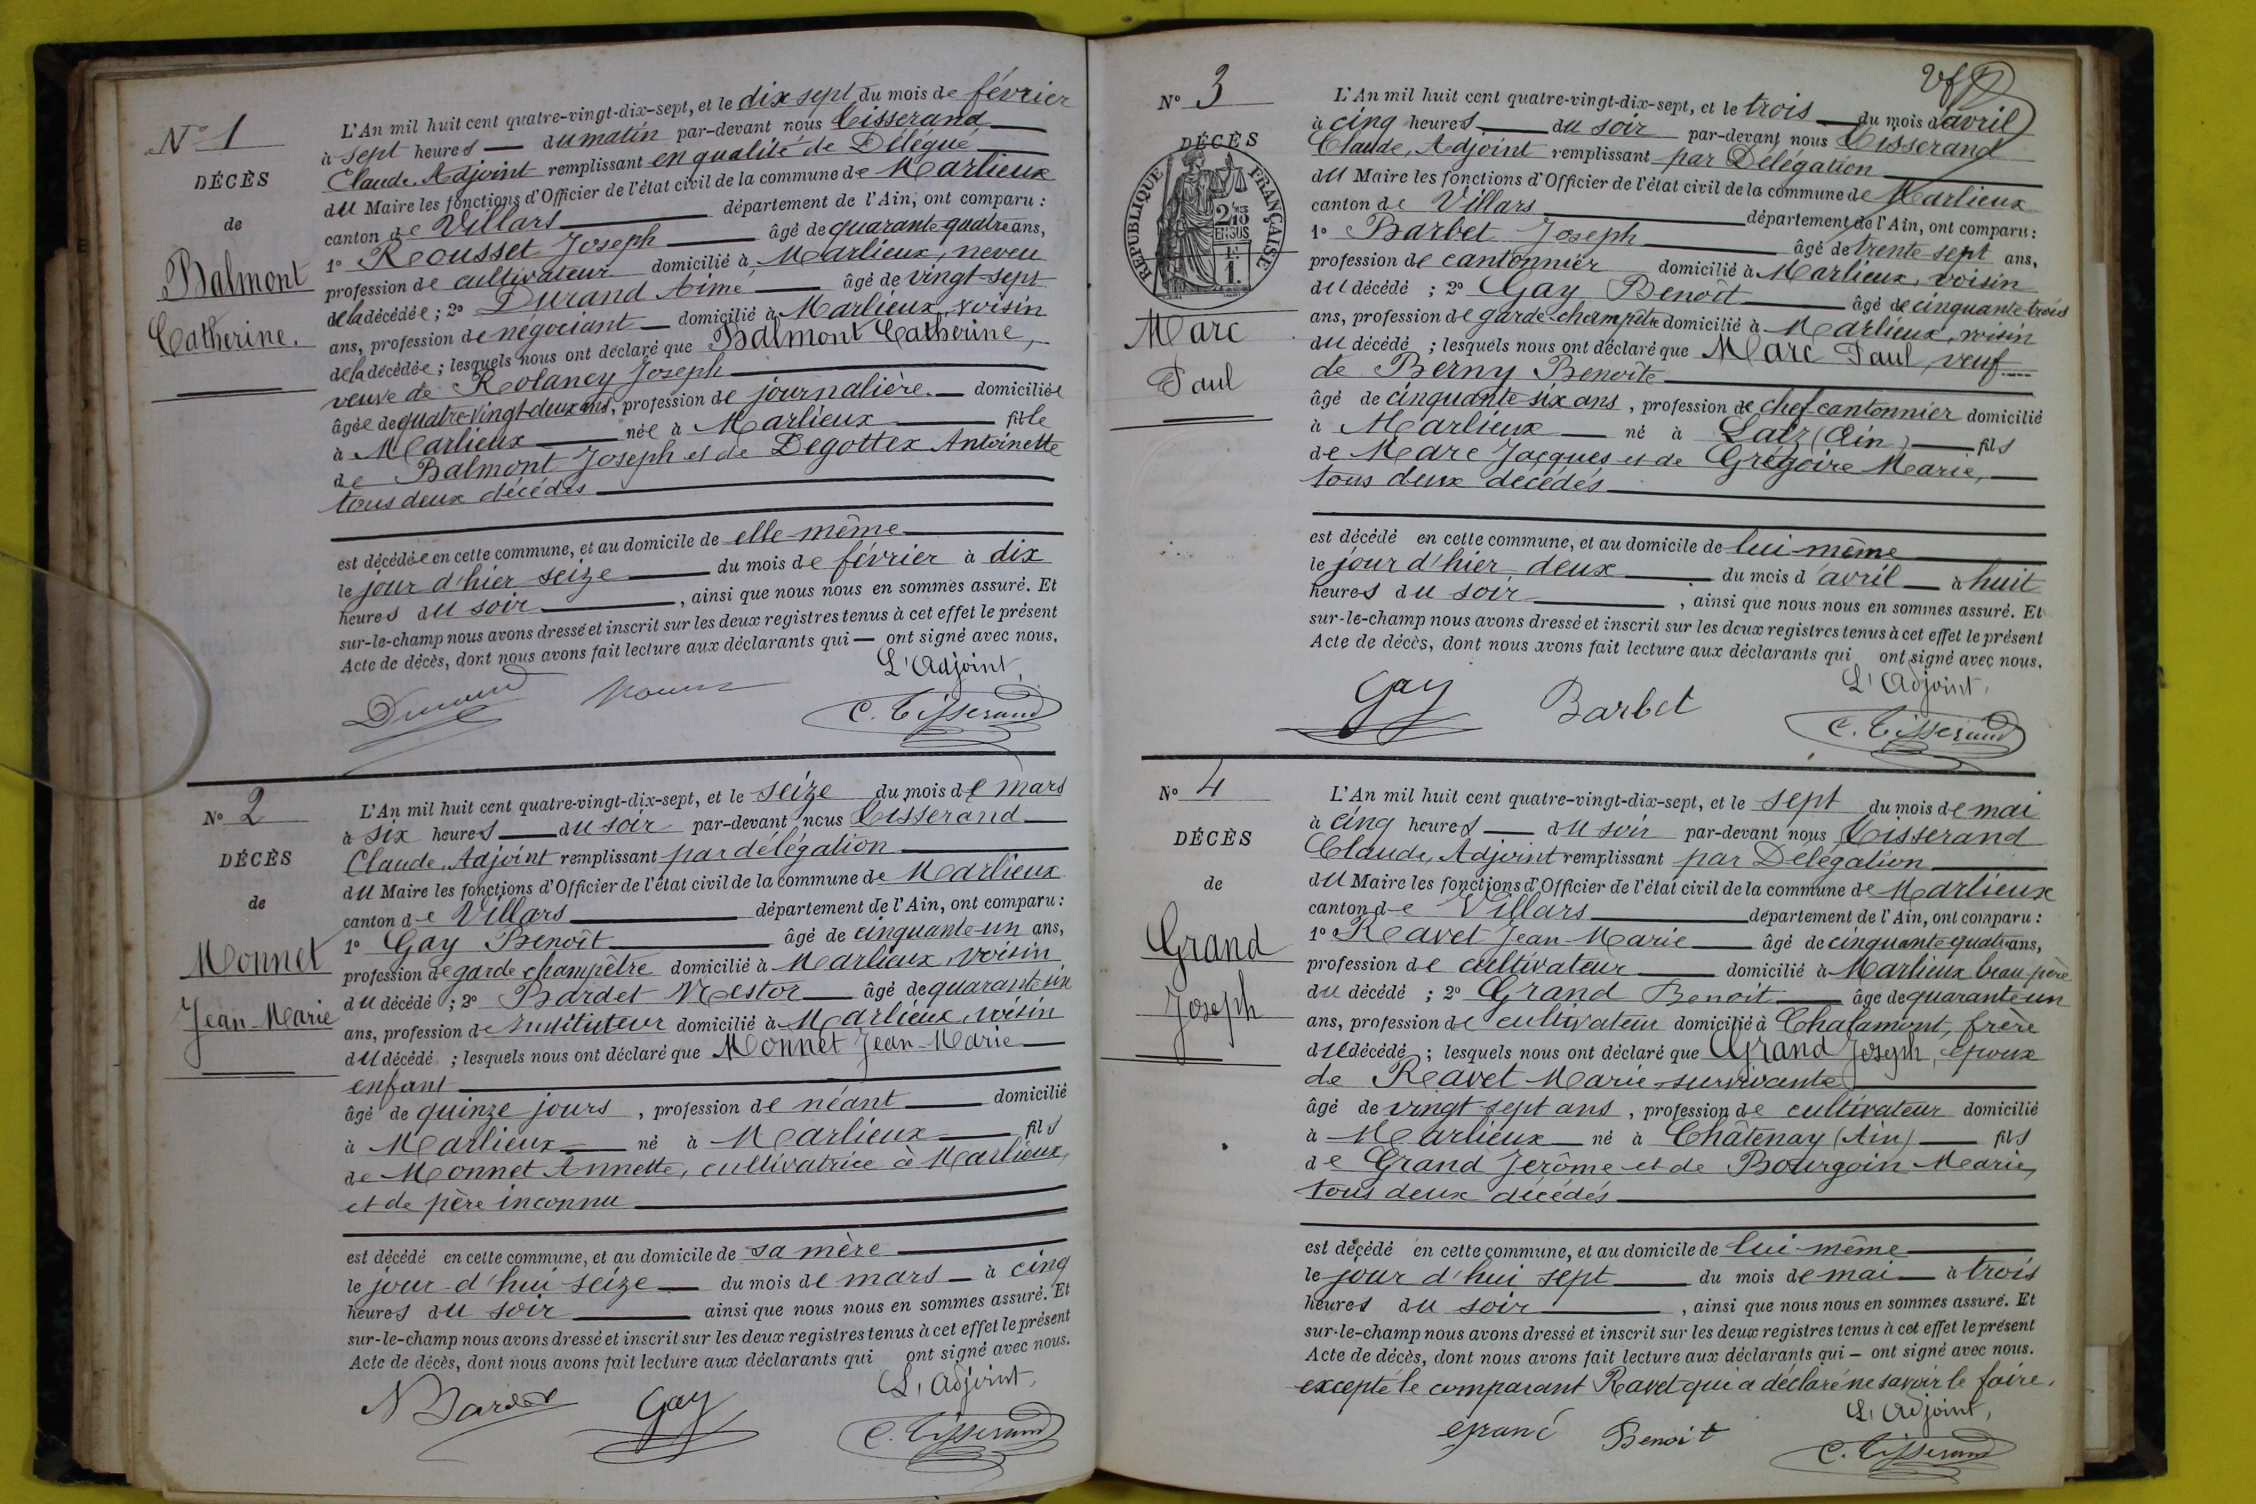 N° 1
DÉCÈS
de
Balmont
Catherine.
L'An mil huit cent quatre-vingt-dix-sept, et le dix sept du mois de février
à sept heures du matin par-devant nous Tisserand
Claude, Adjoint remplissant en qualité de Délégué
du Maire les fonctions d'Officier de l'état civil de la commune de Marlieux
canton de Villars département de l'Ain, ont comparu :
1° Rousset Joseph âgé de quarante-quatre ans,
profession de cultivateur domicilié à Marlieux, neveu
de la décédée ; 2° Durand Aimé âgé de vingt-sept
ans, profession de négociant domicilié à Marlieux, voisin
de la décédée ; lesquels nous ont déclaré que Balmont Catherine,
veuve de Rolancy Joseph
âgée de quatre-vingt-deux ans, profession de journalière. domiciliée
à Marlieux née à Marlieux fille
de Balmont Joseph et de Degottex Antoinette
tous deux décédés
est décédée en cette commune, et au domicile de elle-même
le jour d'hier seize du mois de février à dix
heures du soir , ainsi que nous nous en sommes assuré. Et
sur-le-champ nous avons dressé et inscrit sur les deux registres tenus à cet effet le présent
Acte de décès, dont nous avons fait lecture aux déclarants qui — ont signé avec nous.
L'Adjoint,
Durand C. Tisserand
N° 2
DÉCÈS
de
Monnet
Jean-Marie
L'An mil huit cent quatre-vingt-dix-sept, et le seize du mois de mars
à six heures du soir par-devant nous Tisserand
Claude, Adjoint remplissant par délégation
du Maire les fonctions d'Officier de l'état civil de la commune de Marlieux
canton de Villars département de l'Ain, ont comparu :
1° Gay Benoît âgé de cinquante-un ans,
profession de garde champêtre domicilié à Marlieux, voisin
du décédé ; 2° Bardet Nestor âgé de quarante six
ans, profession de Instituteur domicilié à Marlieux, voisin
du décédé ; lesquels nous ont déclaré que Monnet Jean-Marie
enfant
âgé de quinze jours , profession de néant domicilié
à Marlieux né à Marlieux fils
de Monnet Annette, cultivatrice à Marlieux,
et de père inconnu
est décédé en cette commune, et au domicile de sa mère
le jour d'hui seize du mois de mars à cinq
heures du soir ainsi que nous nous en sommes assuré. Et
sur-le-champ nous avons dressé et inscrit sur les deux registres tenus à cet effet le présent
Acte de décès, dont nous avons fait lecture aux déclarants qui ont signé avec nous.
L'Adjoint,
N Bardet Gay C. Tisserand
N° 3
DÉCÈS
RÉPUBLIQUE FRANÇAISE
Marc
Paul
L'An mil huit cent quatre-vingt-dix-sept, et le trois du mois d'avril
à cinq heures du soir par-devant nous Tisserand
Claude, Adjoint remplissant par Délégation
du Maire les fonctions d'Officier de l'état civil de la commune de Marlieux
canton de Villars département de l'Ain, ont comparu :
1° Barbet Joseph âgé de trente-sept ans,
profession de cantonnier domicilié à Marlieux, voisin
du décédé ; 2° Gay Benoît âgé de cinquante-trois
ans, profession de garde champêtre domicilié à Marlieux, voisin
du décédé ; lesquels nous ont déclaré que Marc Paul, veuf
de Berny Benoîte
âgé de cinquante-six ans , profession de chef-cantonnier domicilié
à Marlieux né à Lalz (Ain) fils
de Marc Jacques et de Grégoire Marie,
tous deux décédés
est décédé en cette commune, et au domicile de lui-même
le jour d'hier deux du mois d'avril à huit
heures du soir , ainsi que nous nous en sommes assuré. Et
sur-le-champ nous avons dressé et inscrit sur les deux registres tenus à cet effet le présent
Acte de décès, dont nous avons fait lecture aux déclarants qui ont signé avec nous.
L'Adjoint,
Gay Barbet C. Tisserand
N° 4
DÉCÈS
de
Grand
Joseph
L'An mil huit cent quatre-vingt-dix-sept, et le sept du mois de mai
à cinq heures du soir par-devant nous Tisserand
Claude, Adjoint remplissant par Delégation
du Maire les fonctions d'Officier de l'état civil de la commune de Marlieux
canton de Villars département de l'Ain, ont comparu :
1° Ravet Jean-Marie âgé de cinquante quatre ans,
profession de cultivateur domicilié à Marlieux beau-père
du décédé ; 2° Grand Benoit âgé de quarante-un
ans, profession de cultivateur domicilié à Chalamont, frère
du décédé ; lesquels nous ont déclaré que Grand Joseph, époux
de Ravet Marie survivante
âgé de vingt sept ans , profession de cultivateur domicilié
à Marlieux né à Châtenay (Ain) fils
de Grand Jerôme et de Bourgoin Marie,
tous deux décédés
est décédé en cette commune, et au domicile de lui-même
le jour d'hui sept du mois de mai à trois
heures du soir , ainsi que nous nous en sommes assuré. Et
sur-le-champ nous avons dressé et inscrit sur les deux registres tenus à cet effet le présent
Acte de décès, dont nous avons fait lecture aux déclarants qui — ont signé avec nous.
excepté le comparant Ravet qui a déclaré ne savoir le faire.
L'Adjoint,
Grand Benoit C. Tisserand